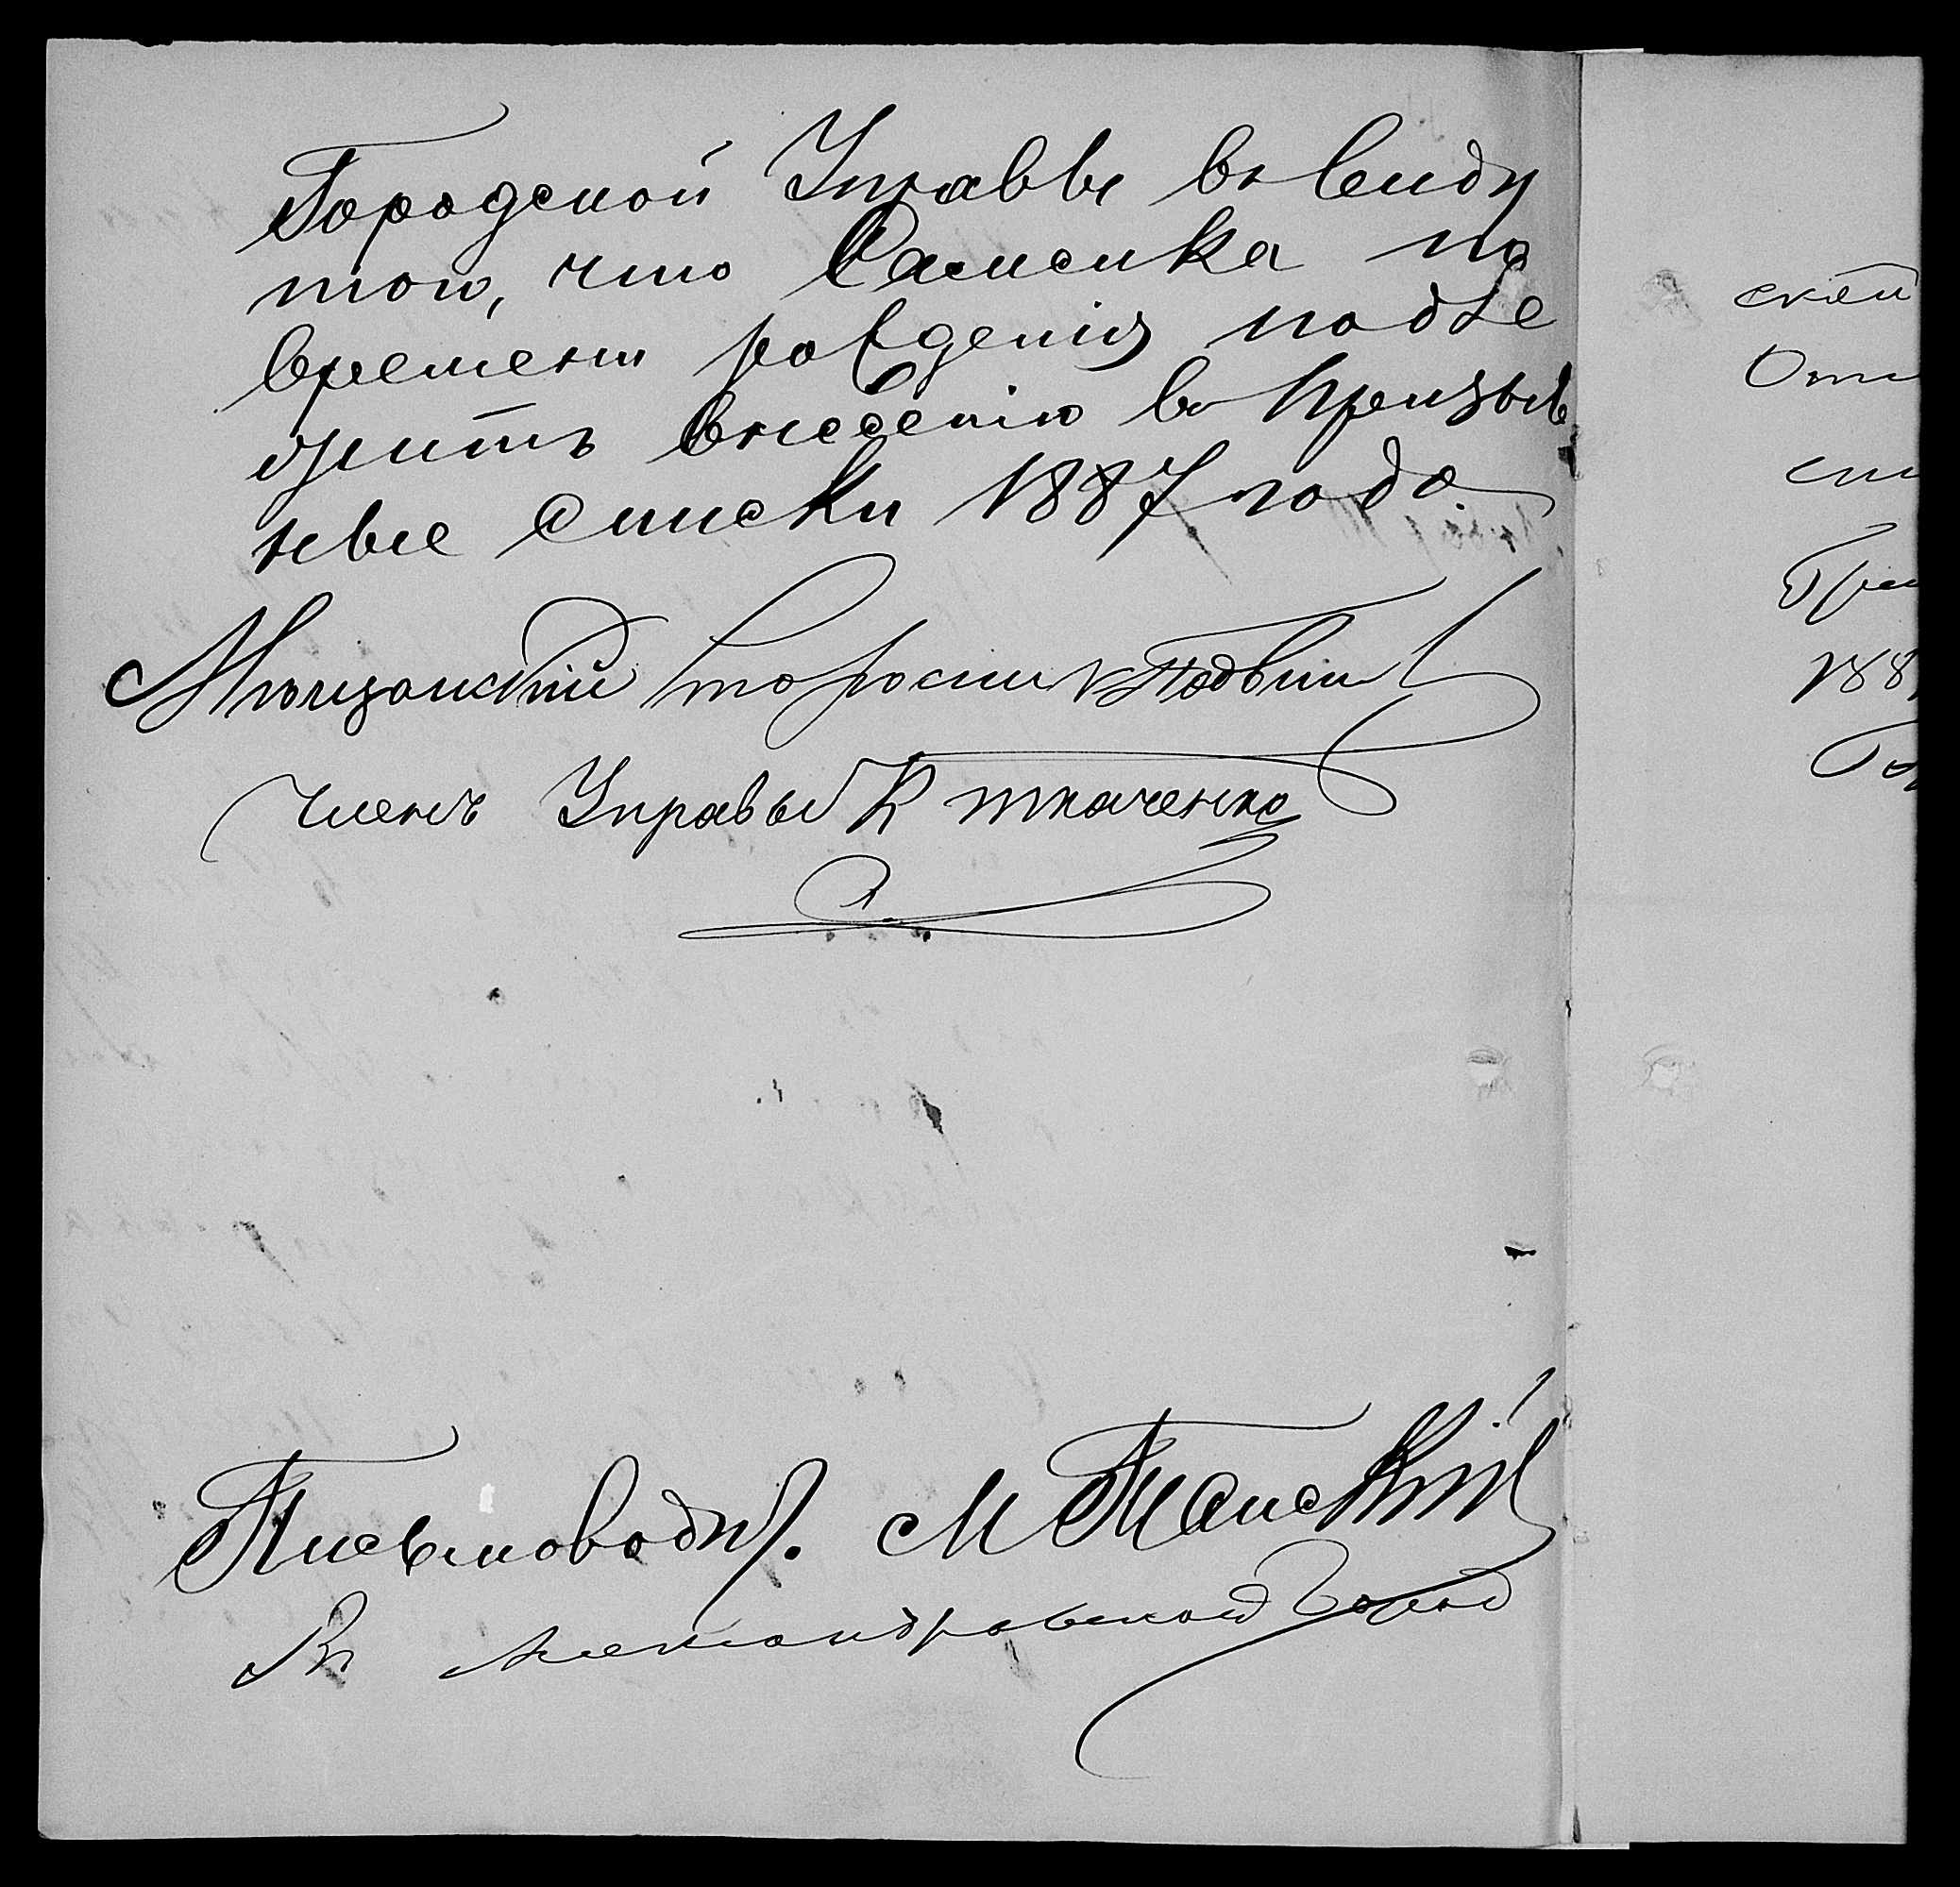 Городской Управѣ въ виду
того, что Самсика по
времени рожденія подле
житъ внесенію въ призыв
ные списки 1887 года.
Мѣщанскій Староста
Членъ Управы К Ткаченко
Письмовод. М
Въ Александровской Город
ской
188